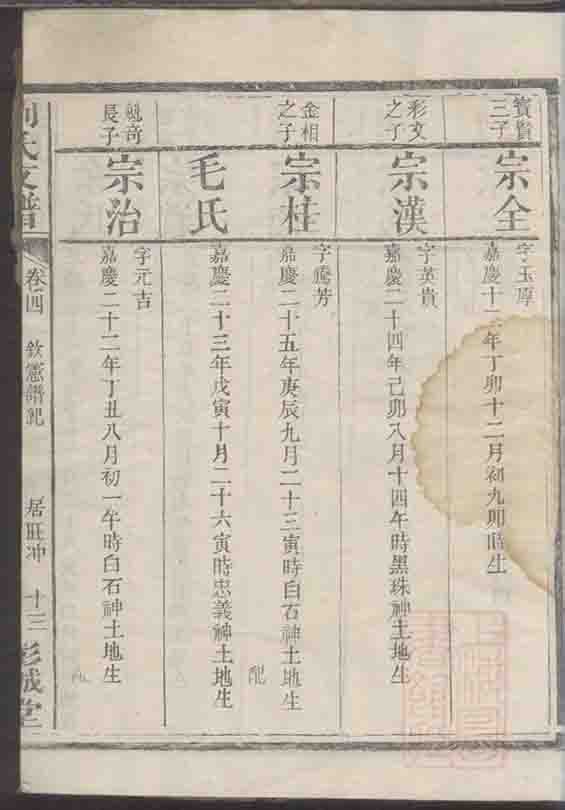 寶賢
三子
宗全
字玉厚
嘉慶十二年丁卯十二月初九卯時生
彩文
之子
宗漢
字英貴
嘉慶二十四年己卯八月十四午時黑珠神土地生
金相
之子
宗桂
字鶯芳
嘉慶二十五年庚辰九月二十三寅時白石神土地生
配
毛氏
嘉慶二十三年戊寅十月二十六寅時忠義神土地生
長子
宗治
字元吉
嘉慶二十二年丁丑八月初一午時白石神土地生
配
氏支譜
卷四
欽憲譜記
居旺冲
十三
彭城堂
上海圖
書館藏